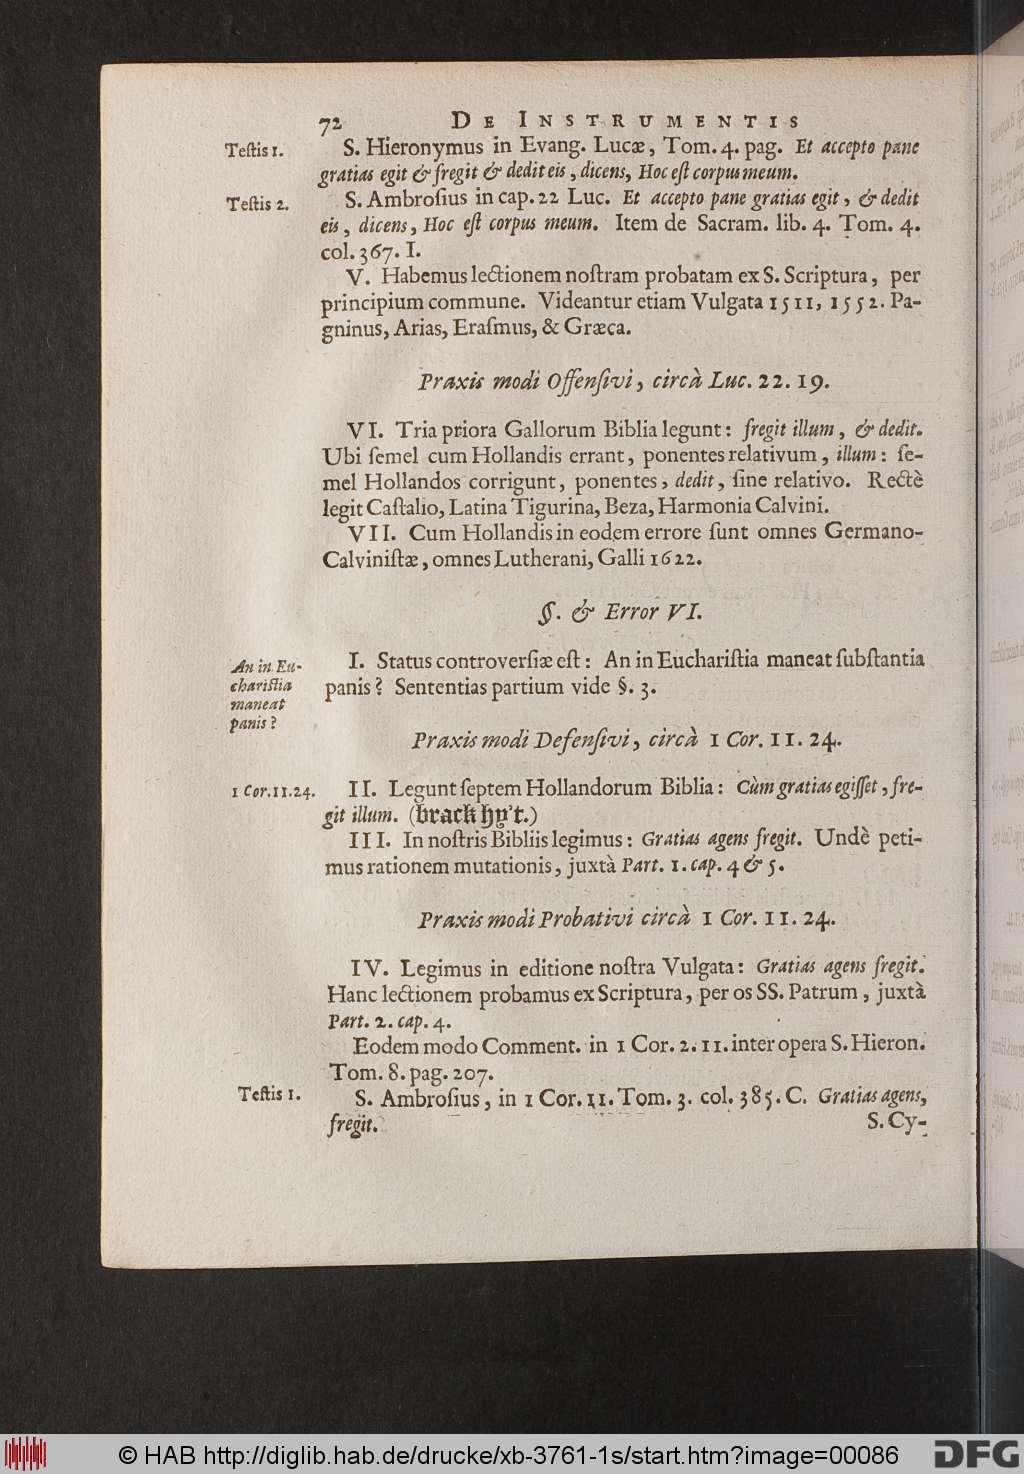 72 De Instrumentis
Testis 1. S. Hieronymus in Evang. Lucæ, Tom. 4. pag. Et accepto pane
gratias egit & fregit & dedit eis, dicens, Hoc est corpus meum.
Testis 2. S. Ambrosius in cap. 22 Luc. Et accepto pane gratias egit, & dedit
eis, dicens, Hoc est corpus meum. Item de Sacram. lib. 4. Tom. 4.
col. 367. I.
V. Habemus lectionem nostram probatam ex S. Scriptura, per
principium commune. Videantur etiam Vulgata 1511, 1552. Pa-
gninus, Arias, Erasmus, & Græca.
Praxis modi Offensivi, circà Luc. 22. 19.
VI. Tria priora Gallorum Biblia legunt: fregit illum, & dedit.
Ubi semel cum Hollandis errant, ponentes relativum, illum: se-
mel Hollandos corrigunt, ponentes, dedit, sine relativo. Rectè
legit Castalio, Latina Tigurina, Beza, Harmonia Calvini.
VII. Cum Hollandis in eodem errore sunt omnes Germano-
Calvinistæ, omnes Lutherani, Galli 1622.
§. & Error VI.
An in Eu-
charistia
maneat
panis?
I. Status controversiæ est: An in Eucharistia maneat substantia
panis? Sententias partium vide §. 3.
Praxis modi Defensivi, circà 1 Cor. 11. 24.
1 Cor. 11. 24. II. Legunt septem Hollandorum Biblia: Cùm gratias egisset, fre-
git illum. (brack hy't.)
III. In nostris Bibliis legimus: Gratias agens fregit. Undè peti-
mus rationem mutationis, juxtà Part. 1. cap. 4 & 5.
Praxis modi Probativi circà 1 Cor. 11. 24.
IV. Legimus in editione nostra Vulgata: Gratias agens fregit.
Hanc lectionem probamus ex Scriptura, per os SS. Patrum, juxtà
Part. 2. cap. 4.
Eodem modo Comment. in 1 Cor. 2. 11. inter opera S. Hieron.
Tom. 8. pag. 207.
Testis 1. S. Ambrosius, in 1 Cor. 11. Tom. 3. col. 385. C. Gratias agens,
fregit.
S. Cy-
© HAB http://diglib.hab.de/drucke/xb-3761-1s/start.htm?image=00086
DFG